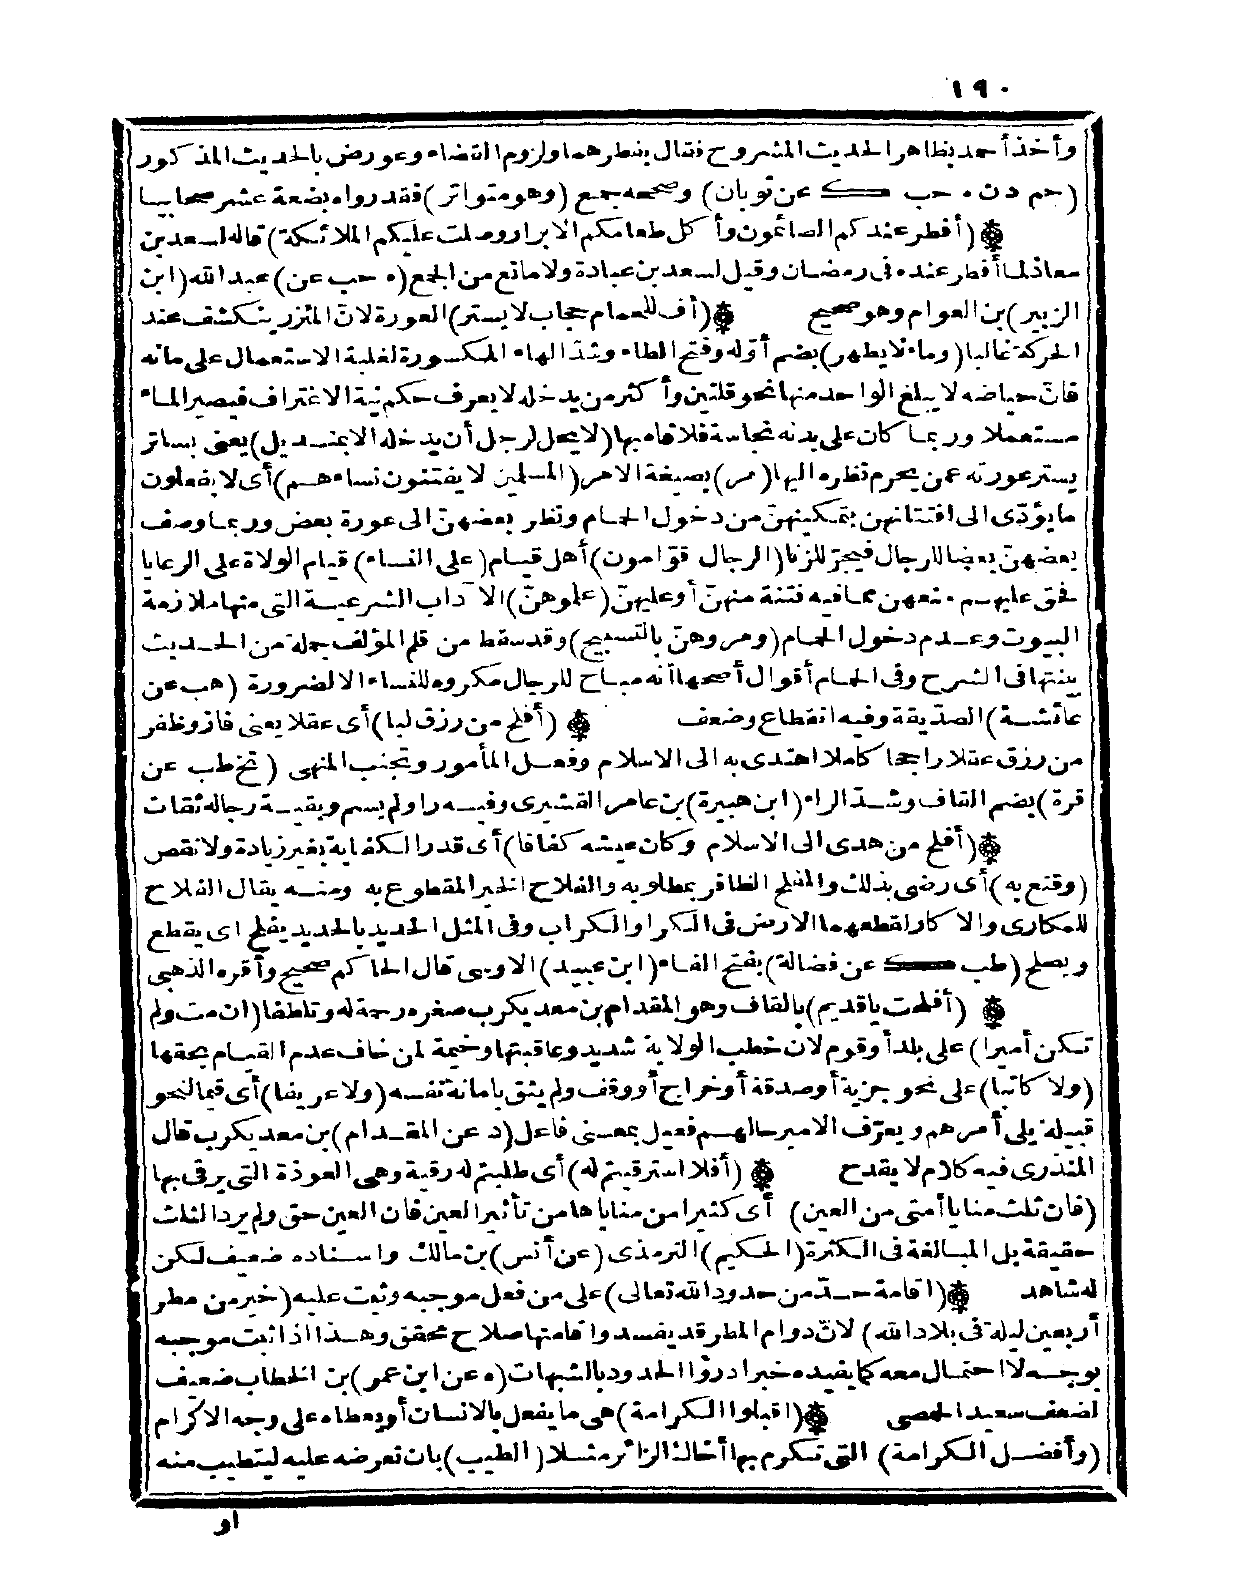 ١٩٠
وأخذ أحمد بظاهر الحديث المشروح فقال بفطرهما ولزوم القضاء وعورض بالحديث المذكور
(حم د ن ه حب ك عن ثوبان) وصححه جمع (وهو متواتر) فقد رواه بضعة عشر صحابيا
(أفطر عندكم الصائمون وأكل طعامكم الابرار وصلت عليكم الملائكة) قاله لسعد بن
معاذ لما أفطر عنده فى رمضان وقيل لسعد بن عبادة ولا مانع من الجمع (ه حب عن) عبد الله (ابن
الزبير) بن العوام وهو صحيح (أف للحمام حجاب لا يستر) العورة لانّ المئزر ينكشف عند
الحركة غالبا (وماء لا يطهر) بضم أوّله وفتح الطاء وشدّ الهاء المكسورة لغلبة الاستعمال على مائه
فانّ حياضه لا يبلغ الواحد منها نحو قلتين وأكثر من يدخله لا يعرف حكم نية الاغتراف فيصير الماء
مستعملا وربما كان على بدنه نجاسة فلاقاه بها (لا يحل لرجل أن يدخله الا بمنديل) يعنى بساتر
يستر عورته عمن يحرم نظره اليها (مر) بصيغة الامر (المسلمين لا يفتنون نساءهم) أى لا يفعلون
ما يؤدّى الى افتتانهن بتمكينهنّ من دخول الحمام ونظر بعضهنّ الى عورة بعض وربما وصف
بعضهنّ بعضا للرجال فيجرّ للزنا (الرجال قوّامون) أهل قيام (على النساء) قيام الولاة على الرعايا
فحق عليهم منعهن مما فيه فتنة منهنّ أو عليهنّ (علموهنّ) الآداب الشرعية التى منها ملازمة
البيوت وعدم دخول الحمام (ومروهنّ بالتسبيح) وقد سقط من قلم المؤلف جملة من الحديث
بينتها فى الشرح وفى الحمام أقوال أصحها أنه مباح للرجال مكروه للنساء الا لضرورة (هب عن
عائشة) الصدّيقة وفيه انقطاع وضعف (أفلح من رزق لبا) أى عقلا يعنى فاز وظفر
من رزق عقلا راجحا كاملا اهتدى به الى الاسلام وفعل المأمور وتجنب المنهى (تخ طب عن
قرة) بضم القاف وشدّ الراء (ابن هبيرة) بن عامر القشيرى وفيه راو لم يسم وبقية رجاله ثقات
(أفلح من هدى الى الاسلام وكان عيشه كفافا) أى قدر الكفاية بغير زيادة ولا نقص
(وقنع به) أى رضى بذلك والمفلح الظافر بمطلوبه والفلاح الخير المقطوع به ومنه يقال الفلاح
للمكارى والاكار لقطعهما الارض فى الكرا والكراب وفى المثل الحديد بالحديد يفلح اى يقطع
ويصلح (طب ك عن فضالة) بفتح الفاء (ابن عبيد) الاوسى قال الحاكم صحيح وأقره الذهبى
(أفلحت يا قديم) بالقاف وهو المقدام بن معد يكرب صغره رحمة له وتلطفا (ان مت ولم
تكن أميرا) على بلد أو قوم لان خطب الولاية شديد وعاقبتها وخيمة لمن خاف عدم القيام بحقها
(ولا كاتبا) على نحو جزية أو صدقة أو خراج أو وقف ولم يثق بامانة نفسه (ولا عريفا) أى قيما لنحو
قبيلة يلى أمرهم ويعرّف الامير حالهم فعيل بمعنى فاعل (د عن المقدام) بن معد يكرب قال
المنذرى فيه كلام لا يقدح (أفلا استرقيتم له) أى طلبتم له رقية وهى العوذة التى يرقى بها
(فان ثلث منايا أمتى من العين) أى كثيرا من مناياها من تأثير العين فان العين حق ولم يرد الثلث
حقيقة بل المبالغة فى الكثرة (الحكيم) الترمذى (عن أنس) بن مالك واسناده ضعيف لكن
له شاهد (اقامة حدّ من حدود الله تعالى) على من فعل موجبه وثبت عليه (خير من مطر
أربعين ليلة فى بلاد الله) لانّ دوام المطر قد يفسد واقامتها صلاح محقق وهذا اذا ثبت موجبه
بوجه لا احتمال معه كما يفيده خبر ادرؤا الحدود بالشبهات (ه عن ابن عمر) بن الخطاب ضعيف
لضعف سعيد الحمصى (اقبلوا الكرامة) هى ما يفعل بالانسان أو يعطاه على وجه الاكرام
(وأفضل الكرامة) التى تكرم بها أخاك الزائر مثلا (الطيب) بان تعرضه عليه ليتطيب منه
او